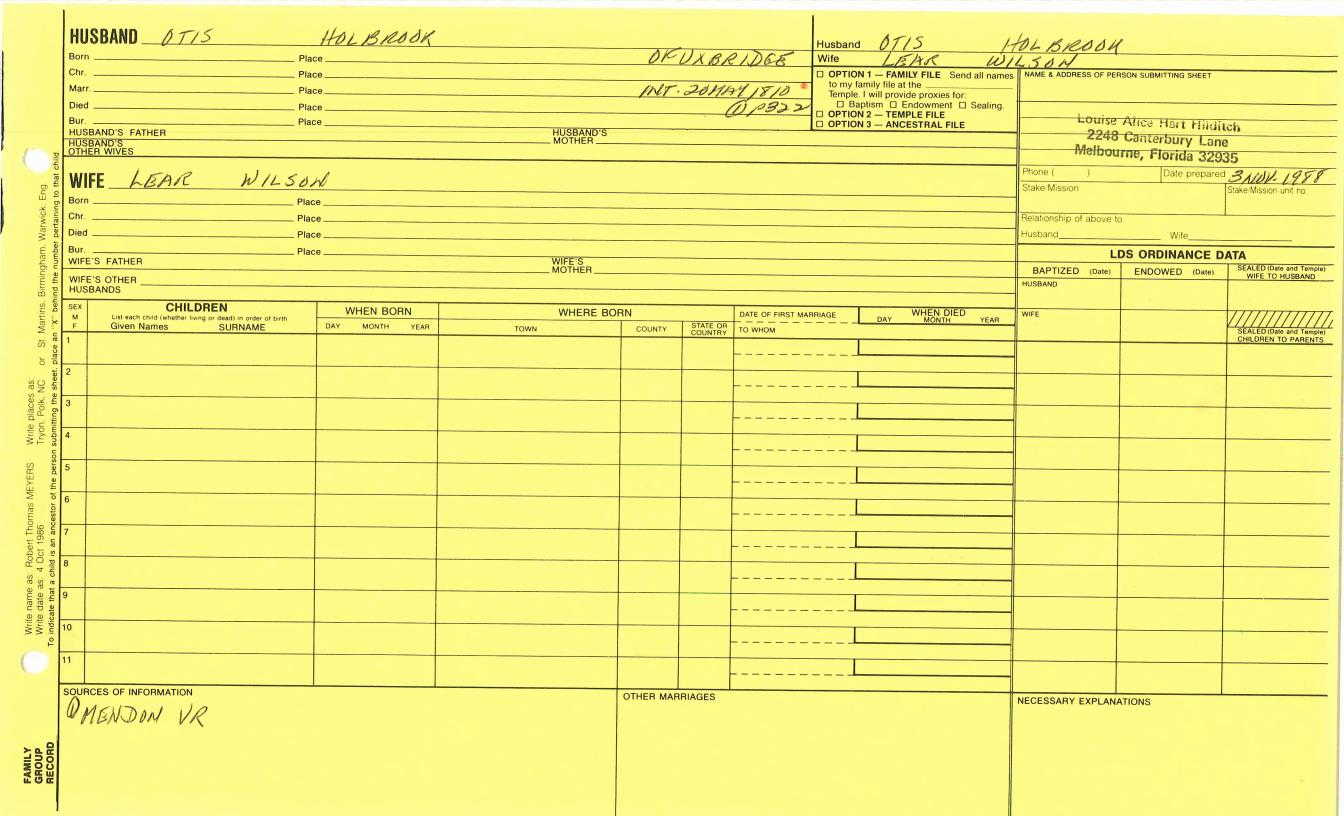 HUSBAND OTIS HOLBROOK
Born Place OF UXBRIDGE
Chr. Place
Marr. Place INT. 20 MAY 1810
Died Place ① P322
Bur. Place
HUSBAND'S FATHER HUSBAND'S MOTHER
HUSBAND'S OTHER WIVES
Husband OTIS HOLBROOK
Wife LEAR WILSON
☐ OPTION 1 — FAMILY FILE Send all names
to my family file at the
Temple. I will provide proxies for:
☐ Baptism ☐ Endowment ☐ Sealing.
☐ OPTION 2 — TEMPLE FILE
☐ OPTION 3 — ANCESTRAL FILE
NAME & ADDRESS OF PERSON SUBMITTING SHEET
Louise Alice Hart Hilditch
2248 Canterbury Lane
Melbourne, Florida 32935
Phone ( ) Date prepared 3 NOV. 1988
Stake/Mission Stake/Mission unit no.
Relationship of above to
Husband Wife
WIFE LEAR WILSON
Born Place
Chr. Place
Died Place
Bur. Place
WIFE'S FATHER WIFE'S MOTHER
WIFE'S OTHER HUSBANDS
LDS ORDINANCE DATA
BAPTIZED (Date) ENDOWED (Date) SEALED (Date and Temple) WIFE TO HUSBAND
HUSBAND
WIFE
SEALED (Date and Temple) CHILDREN TO PARENTS
SEX M F
CHILDREN
List each child (whether living or dead) in order of birth
Given Names SURNAME
WHEN BORN
DAY MONTH YEAR
WHERE BORN
TOWN COUNTY STATE OR COUNTRY
DATE OF FIRST MARRIAGE
TO WHOM
WHEN DIED
DAY MONTH YEAR
1
2
3
4
5
6
7
8
9
10
11
SOURCES OF INFORMATION
① MENDON VR
OTHER MARRIAGES
NECESSARY EXPLANATIONS
Write name as: Robert Thomas MEYERS Write places as:
Write date as: 4 Oct 1986 Tryon, Polk, NC or St. Martins, Birmingham, Warwick, Eng.
To indicate that a child is an ancestor of the person submitting the sheet, place an "X" behind the number pertaining to that child
FAMILY
GROUP
RECORD